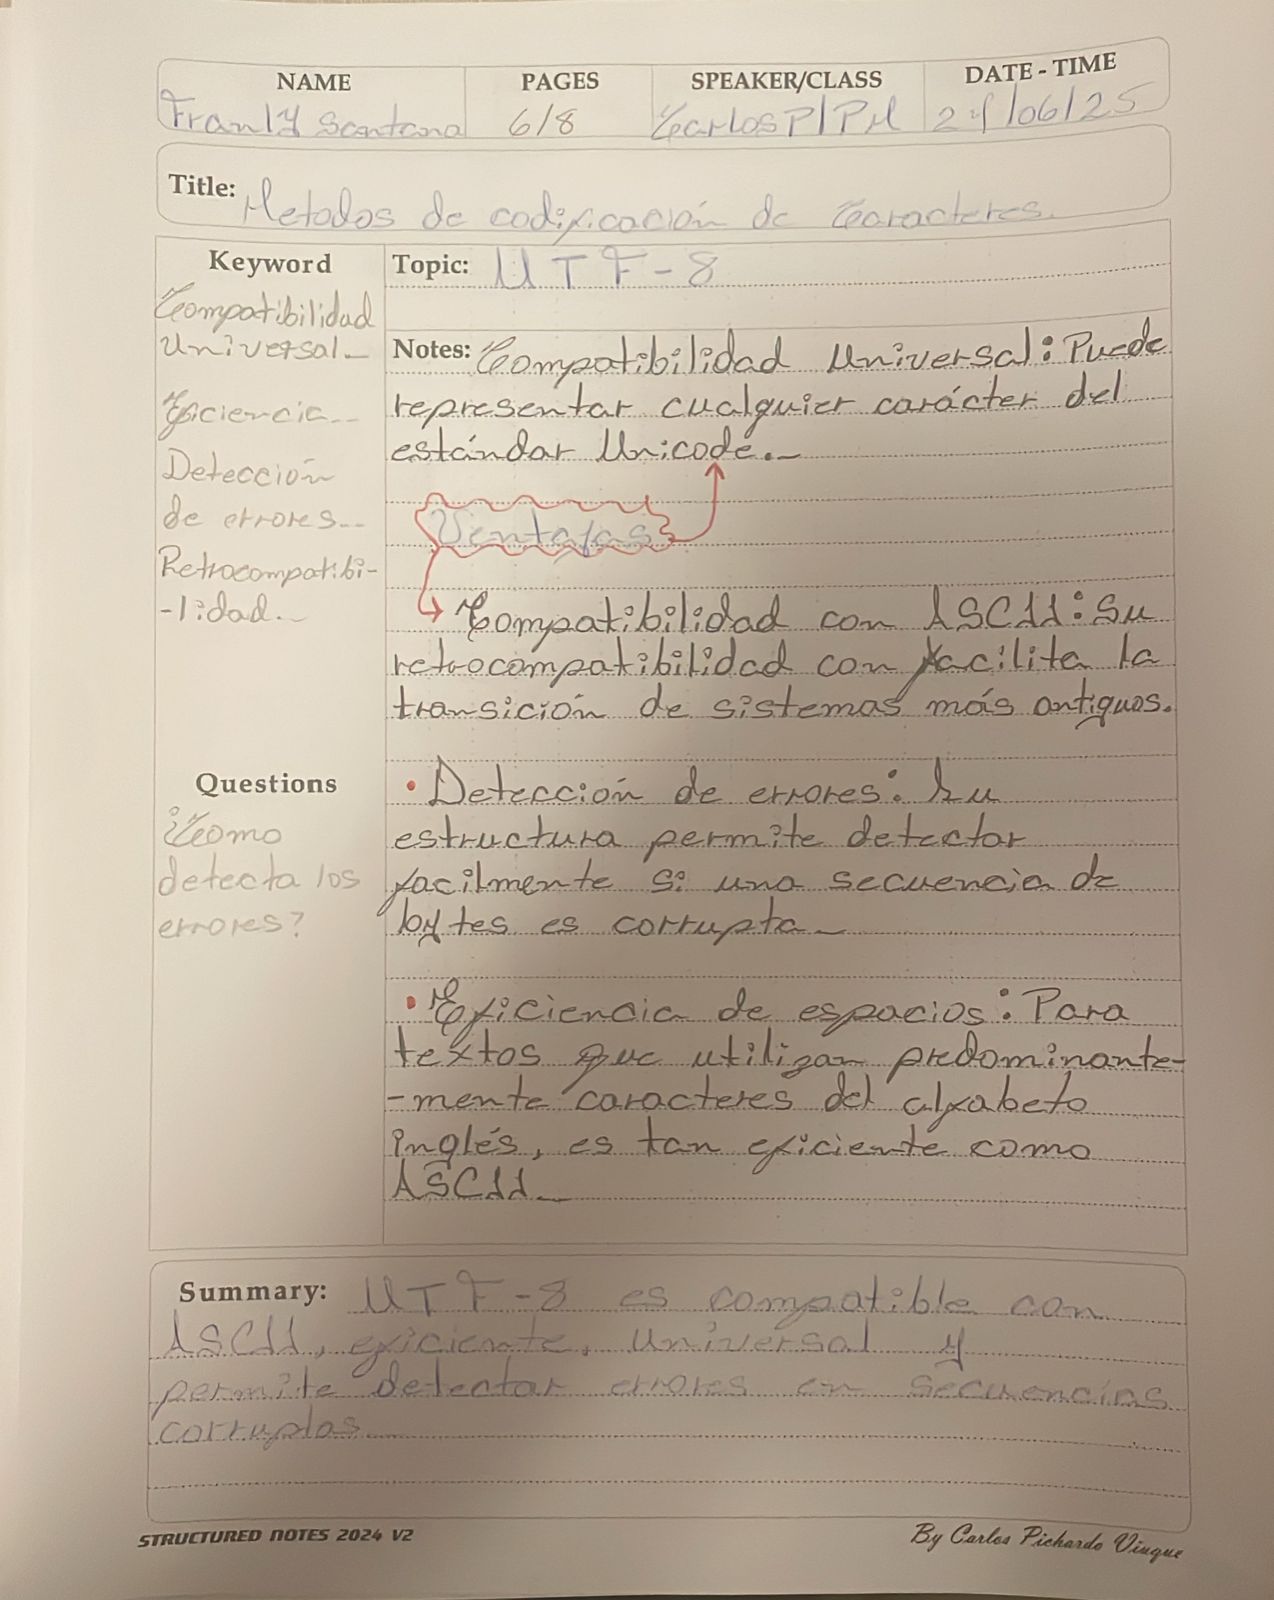 NAME PAGES SPEAKER/CLASS DATE - TIME
Franly Santana 6/8 CarlosP/PM 24/06/25
Title: Metodos de codificación de Caracteres.
Keyword
Compatibilidad
Universal.
Eficiencia..
Detección
de errores...
Retrocompatibi-
-lidad..
Questions
¿Como
detecta los
errores?
Topic: UTF-8
Notes: Compatibilidad Universal: Puede
representar cualquier carácter del
estándar Unicode.
Ventajas
Compatibilidad con ASCII: Su
retrocompatibilidad con facilita la
transición de sistemas más antiguos.
• Detección de errores: Su
estructura permite detectar
facilmente si una secuencia de
bytes es corrupta
• Eficiencia de espacios: Para
textos que utilizan predominante-
-mente caracteres del alfabeto
inglés, es tan eficiente como
ASCII
Summary: UTF-8 es compatible con
ASCII, eficiente, universal y
permite detectar errores en secuencias
corruptas
STRUCTURED NOTES 2024 V2
By Carlos Pichardo Viuque